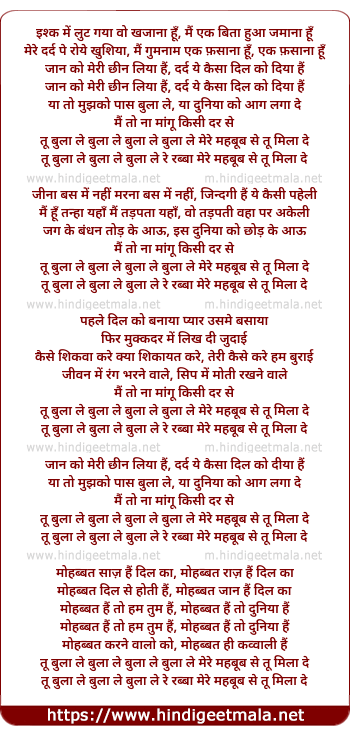 इश्क में लुट गया वो खजाना हूँ, मैं एक बिता हुआ जमाना हूँ
मेरे दर्द पे रोये खुशिया, मैं गुमनाम एक फ़साना हूँ, एक फ़साना हूँ
जान को मेरी छीन लिया हैं, दर्द ये कैसा दिल को दिया हैं
जान को मेरी छीन लिया हैं, दर्द ये कैसा दिल को दिया हैं
या तो मुझको पास बुला ले, या दुनिया को आग लगा दे
मैं तो ना मांगू किसी दर से
तू बुला ले बुला ले बुला ले बुला ले मेरे महबूब से तू मिला दे
तू बुला ले बुला ले बुला ले रे रब्बा मेरे महबूब से तू मिला दे
www.hindigeetmala.net m.hindigeetmala.net
जीना बस में नहीं मरना बस में नहीं, जिन्दगी हैं ये कैसी पहेली
मैं हूँ तन्हा यहाँ मैं तड़पता यहाँ, वो तड़पती वहा पर अकेली
जग के बंधन तोड़ के आऊ, इस दुनिया को छोड़ के आऊ
मैं तो ना मांगू किसी दर से
तू बुला ले बुला ले बुला ले बुला ले मेरे महबूब से तू मिला दे
तू बुला ले बुला ले बुला ले रे रब्बा मेरे महबूब से तू मिला दे
www.hindigeetmala.net m.hindigeetmala.net
पहले दिल को बनाया प्यार उसमे बसाया
फिर मुक्कदर में लिख दी जुदाई
कैसे शिकवा करे क्या शिकायत करे, तेरी कैसे करे हम बुराई
जीवन में रंग भरने वाले, सिप में मोती रखने वाले
मैं तो ना मांगू किसी दर से
तू बुला ले बुला ले बुला ले बुला ले मेरे महबूब से तू मिला दे
तू बुला ले बुला ले बुला ले रे रब्बा मेरे महबूब से तू मिला दे
www.hindigeetmala.net m.hindigeetmala.net
जान को मेरी छीन लिया हैं, दर्द ये कैसा दिल को दीया हैं
या तो मुझको पास बुला ले, या दुनिया को आग लगा दे
मैं तो ना मांगू किसी दर से
तू बुला ले बुला ले बुला ले बुला ले मेरे महबूब से तू मिला दे
तू बुला ले बुला ले बुला ले रे रब्बा मेरे महबूब से तू मिला दे
www.hindigeetmala.net m.hindigeetmala.net
मोहब्बत साज़ हैं दिल का, मोहब्बत राज़ हैं दिल का
मोहब्बत दिल से होती हैं, मोहब्बत जान हैं दिल का
मोहब्बत हैं तो हम तुम हैं, मोहब्बत हैं तो दुनिया हैं
मोहब्बत हैं तो हम तुम हैं, मोहब्बत हैं तो दुनिया हैं
मोहब्बत करने वालो को, मोहब्बत ही कव्वाली हैं
तू बुला ले बुला ले बुला ले बुला ले मेरे महबूब से तू मिला दे
तू बुला ले बुला ले बुला ले रे रब्बा मेरे महबूब से तू मिला दे
https://www.hindigeetmala.net